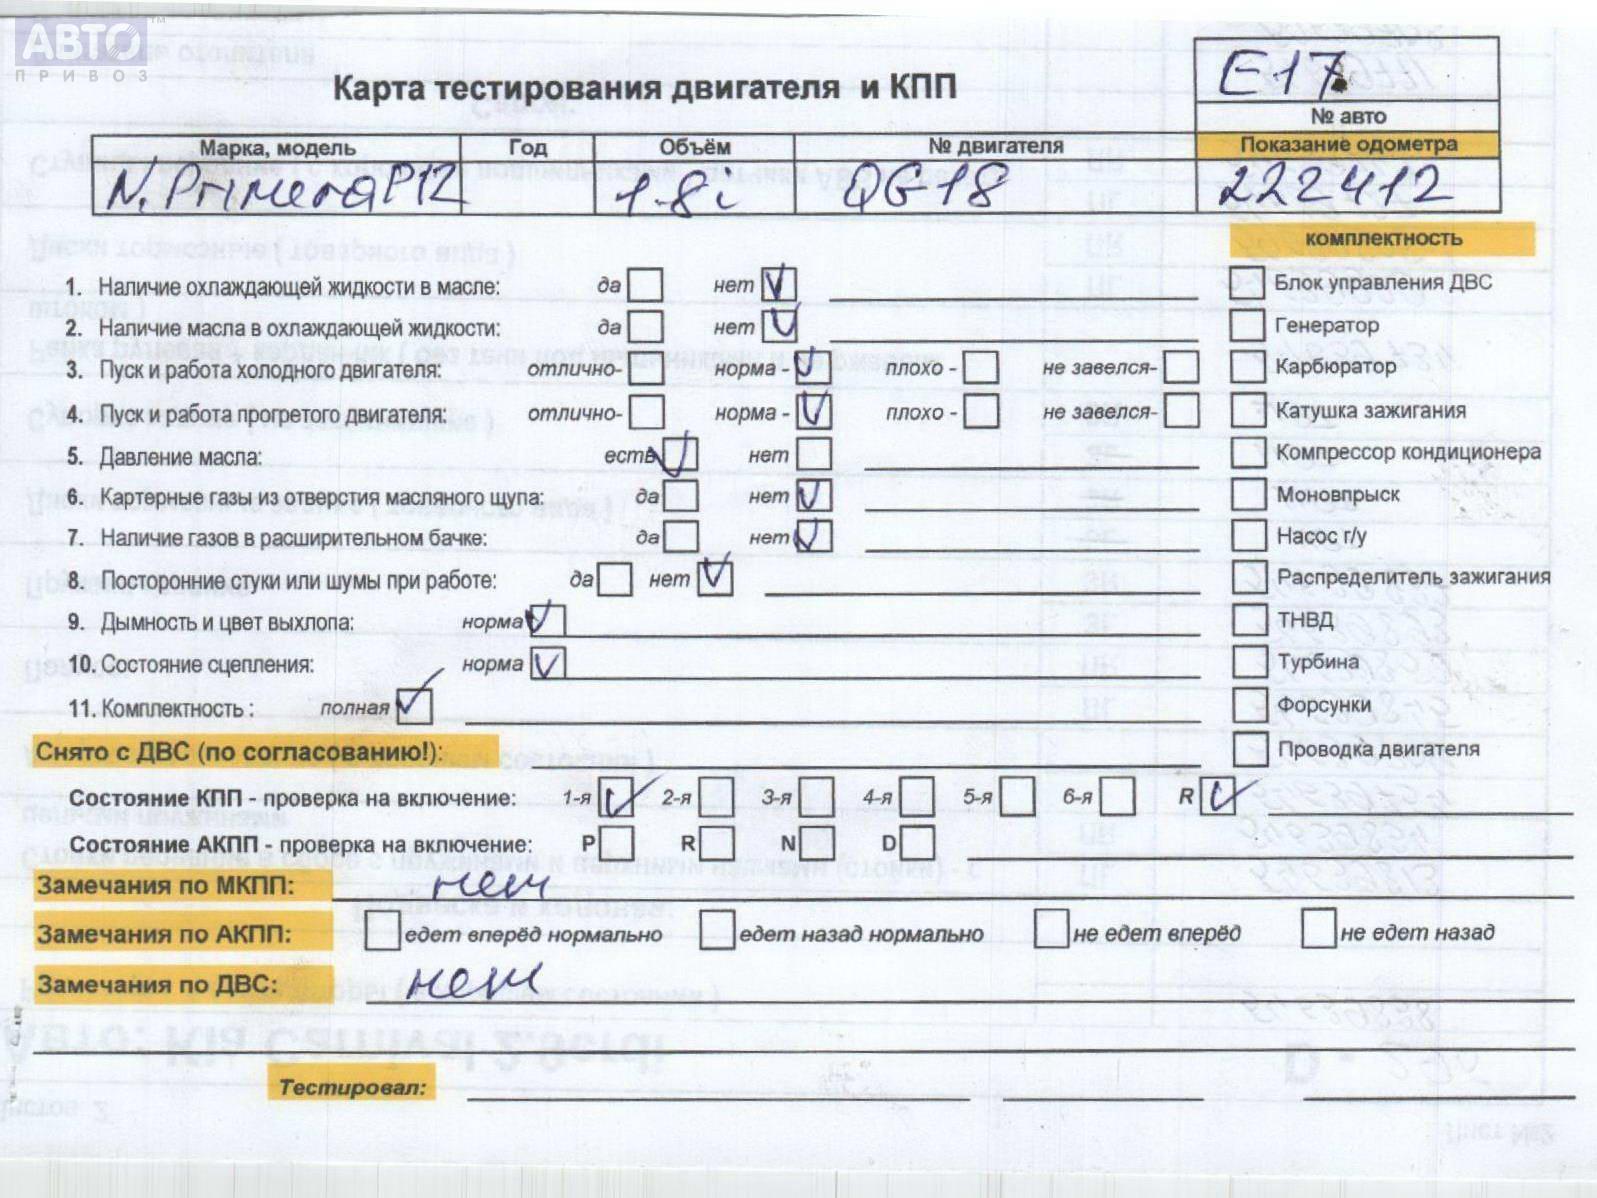 АВТО™
ПРИВОЗ
Карта тестирования двигателя и КПП
E17
№ авто
Марка, модель Год Объём № двигателя Показание одометра
N. Primera P12 1.8i QG18 222412
комплектность
1. Наличие охлаждающей жидкости в масле: да нет Блок управления ДВС
2. Наличие масла в охлаждающей жидкости: да нет Генератор
3. Пуск и работа холодного двигателя: отлично- норма - плохо - не завелся- Карбюратор
4. Пуск и работа прогретого двигателя: отлично- норма - плохо - не завелся- Катушка зажигания
5. Давление масла: есть нет Компрессор кондиционера
6. Картерные газы из отверстия масляного щупа: да нет Моновпрыск
7. Наличие газов в расширительном бачке: да нет Насос г/у
8. Посторонние стуки или шумы при работе: да нет Распределитель зажигания
9. Дымность и цвет выхлопа: норма ТНВД
10. Состояние сцепления: норма Турбина
11. Комплектность : полная Форсунки
Снято с ДВС (по согласованию!): Проводка двигателя
Состояние КПП - проверка на включение: 1-я 2-я 3-я 4-я 5-я 6-я R
Состояние АКПП - проверка на включение: P R N D
Замечания по МКПП: нет
Замечания по АКПП: едет вперёд нормально едет назад нормально не едет вперёд не едет назад
Замечания по ДВС: нет
Авто: Kia Carnival 2.9crdi
Тестировал: